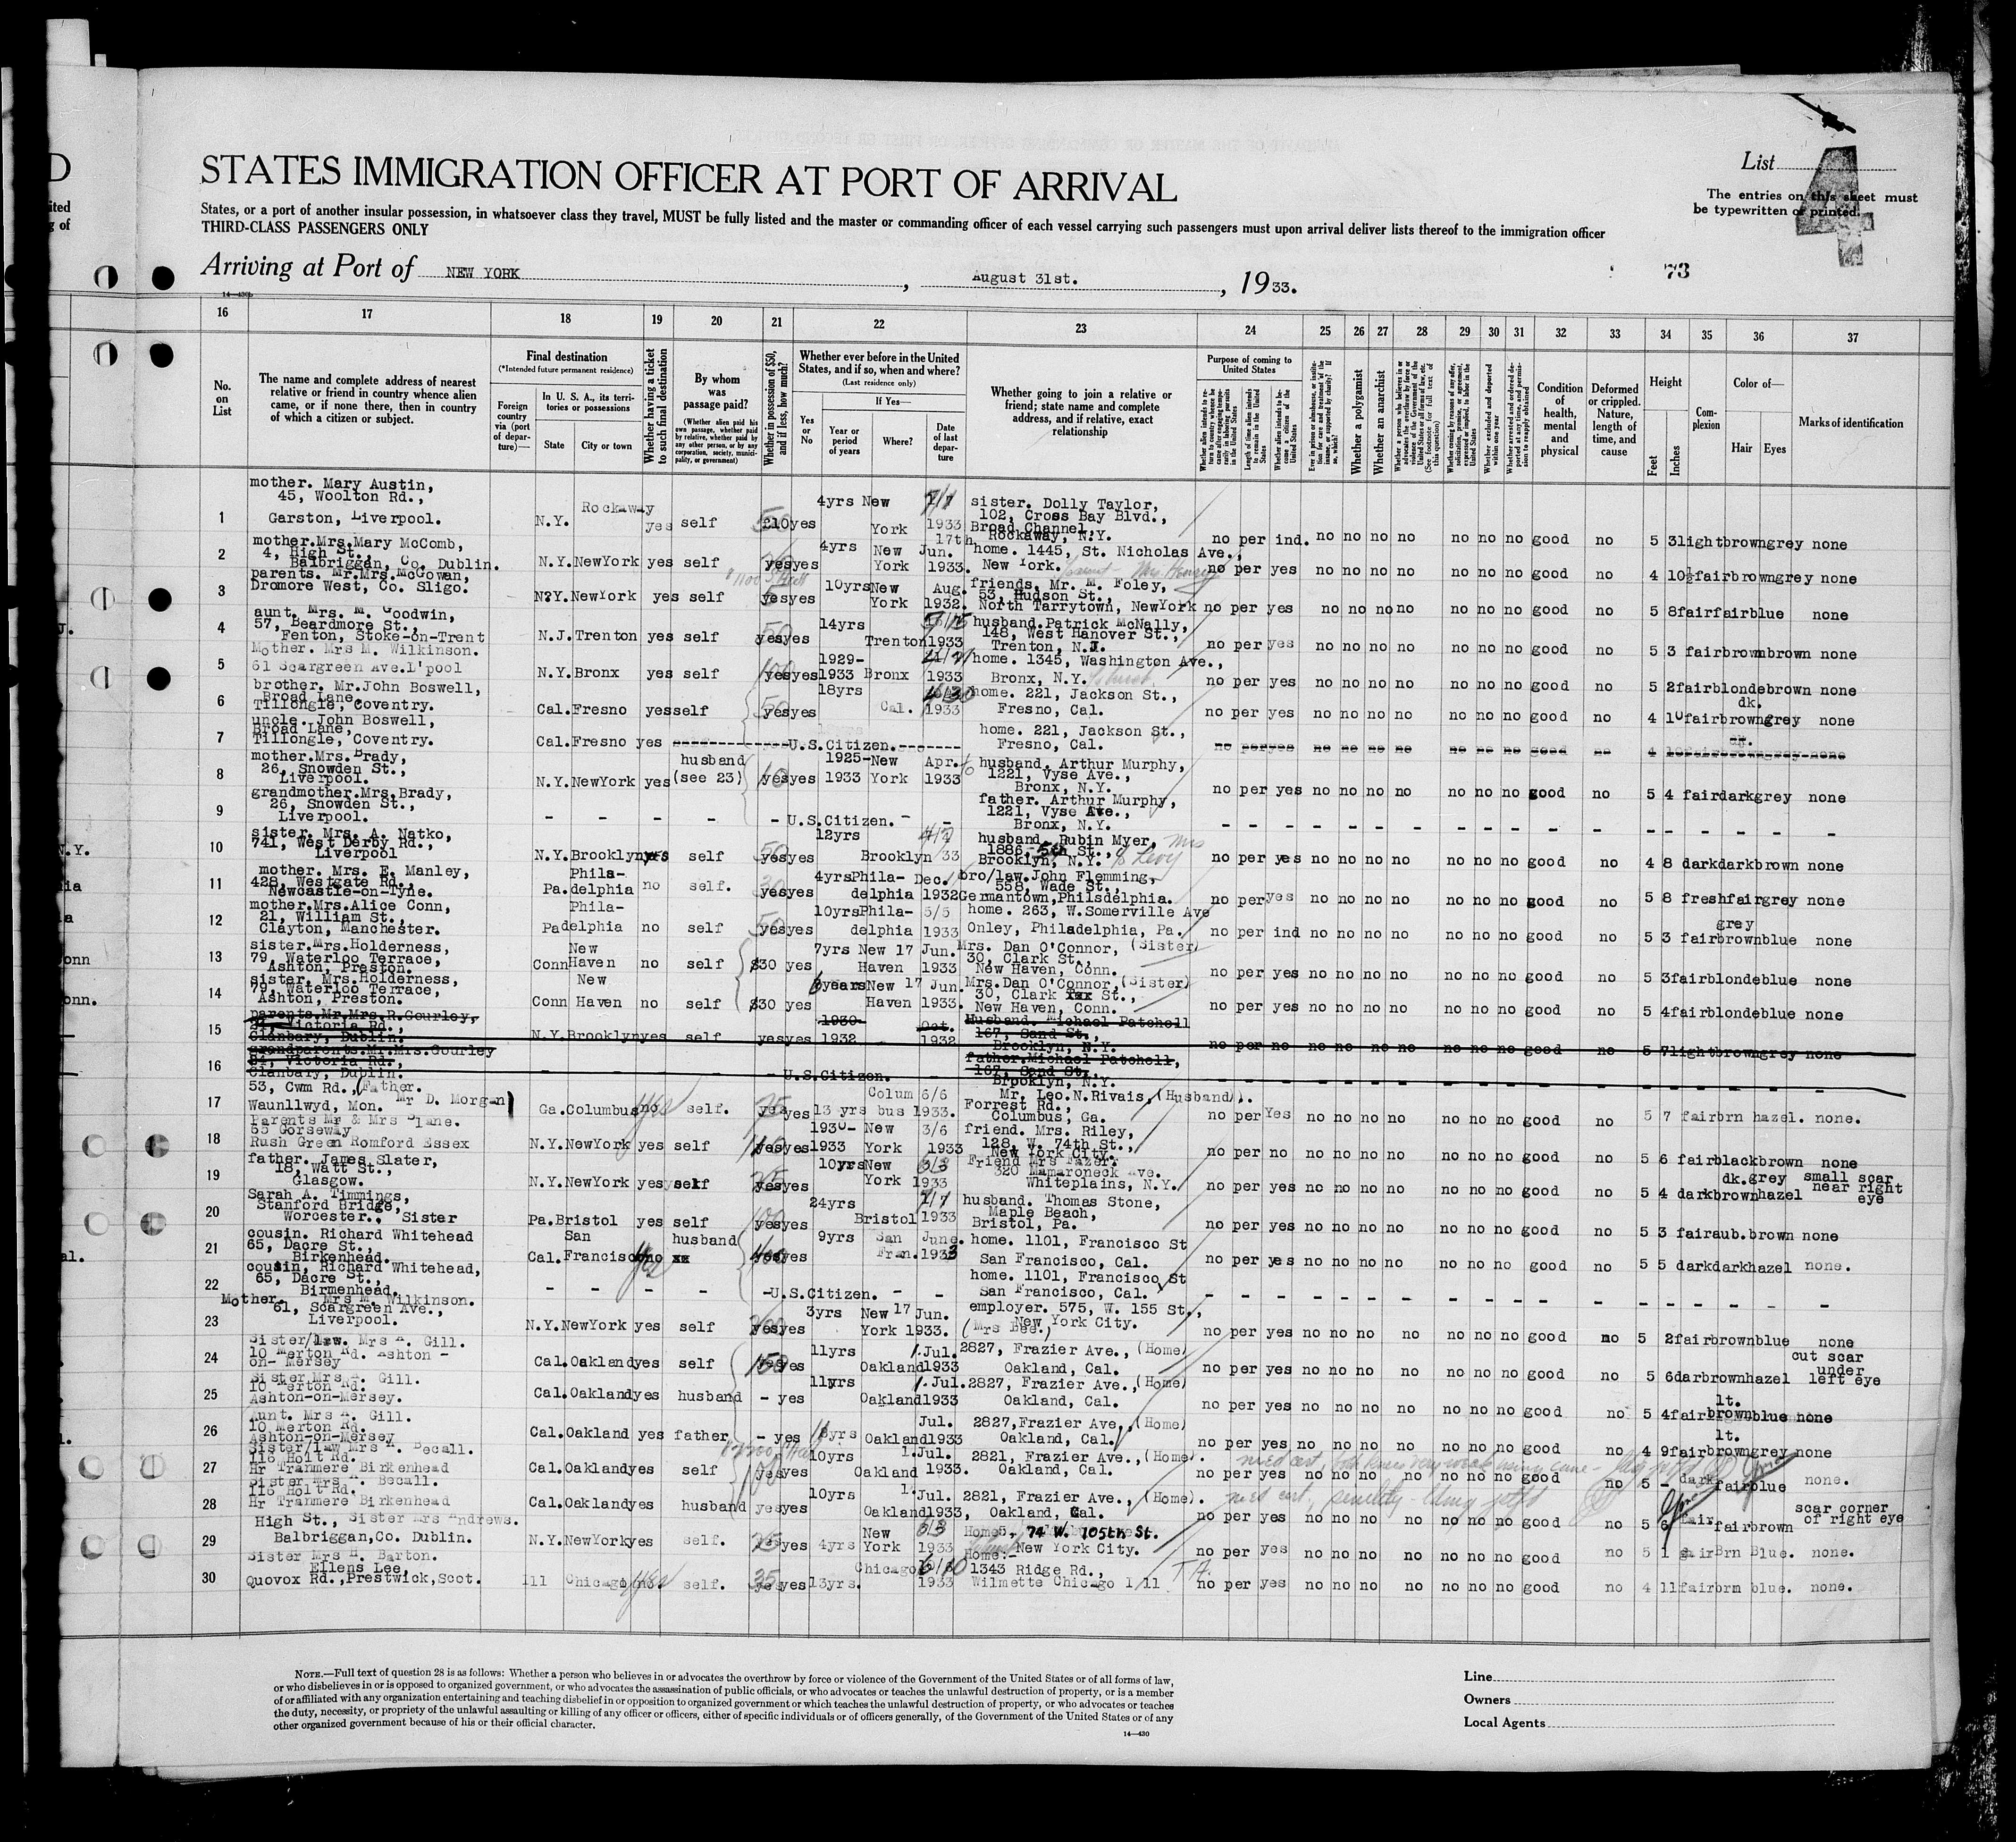 D
STATES IMMIGRATION OFFICER AT PORT OF ARRIVAL
List
4
The entries on this sheet must
be typewritten or printed.
States, or a port of another insular possession, in whatsoever class they travel, MUST be fully listed and the master or commanding officer of each vessel carrying such passengers must upon arrival deliver lists thereof to the immigration officer
THIRD-CLASS PASSENGERS ONLY
Arriving at Port of NEW YORK, August 31st., 1933.
73
16 17 18 19 20 21 22 23 24 25 26 27 28 29 30 31 32 33 34 35 36 37
No. on List
The name and complete address of nearest relative or friend in country whence alien came, or if none there, then in country of which a citizen or subject.
Final destination
(*Intended future permanent residence)
Foreign country via (port of departure)—
In U. S. A., its territories or possessions
State
City or town
Whether having a ticket to such final destination
By whom was passage paid?
(Whether alien paid his own passage, whether paid by relative, whether paid by any other person, or by any corporation, society, municipality, or government)
Whether in possession of $50, and if less, how much?
Whether ever before in the United States, and if so, when and where?
(Last residence only)
If Yes—
Yes or No
Year or period of years
Where?
Date of last departure
Whether going to join a relative or friend; state name and complete address, and if relative, exact relationship
Purpose of coming to United States
Whether a polygamist
Whether an anarchist
Condition of health, mental and physical
Deformed or crippled. Nature, length of time, and cause
Height
Feet
Inches
Complexion
Color of—
Hair
Eyes
Marks of identification
mother. Mary Austin,
45, Woolton Rd.,
1 Garston, Liverpool. N.Y. Rockaway yes self £10 yes 4yrs New York 1933 sister. Dolly Taylor, 102, Cross Bay Blvd., Broad Channel, Rockaway, N.Y. no per ind. no no no no no no no good no 5 3 light brown grey none
mother.Mrs.Mary McComb,
4, High St.,
2 Balbriggan, Co. Dublin. N.Y. NewYork yes self yes yes 4yrs New York 17th Jun. 1933. home. 1445, St. Nicholas Ave., New York. no per yes no no no no no no no good no 4 10½ fair brown grey none
parents. Mr.Mrs.McGowan,
3 Dromore West, Co. Sligo. N?Y. NewYork yes self yes 10yrs New York Aug. 1932. friends, Mr. M. Foley, 53, Hudson St., North Tarrytown, NewYork no per yes no no no no no no no good no 5 8 fair fair blue none
aunt. Mrs. M. Goodwin,
57, Beardmore St.,
4 Fenton, Stoke-on-Trent N.J. Trenton yes self yes yes 14yrs Trenton 1933 husband. Patrick McNally, 148, West Hanover St., Trenton, N.J. no per yes no no no no no no no good no 5 3 fair brown brown none
Mother. Mrs M. Wilkinson.
5 61 Scargreen Ave.L'pool N.Y. Bronx yes self yes yes 1929-1933 Bronx 1933 home. 1345, Washington Ave., Bronx, N.Y. no per yes no no no no no no no good no 5 2 fair blonde brown none
brother. Mr.John Boswell,
Broad Lane,
6 Tillongle, Coventry. Cal. Fresno yes self yes yes 18yrs Cal. 1933 home. 221, Jackson St., Fresno, Cal. no per yes no no no no no no no good no 4 10 fair dk. brown grey none
uncle. John Boswell,
Broad Lane,
7 Tillongle, Coventry. Cal. Fresno yes U.S.Citizen. home. 221, Jackson St., Fresno, Cal. no per yes no no no no no no no good no 4 10 fair dk. brown grey none
mother.Mrs.Brady,
26, Snowden St.,
8 Liverpool. N.Y. NewYork yes husband (see 23) yes yes 1925-1933 New York Apr. 1933 husband, Arthur Murphy, 1221, Vyse Ave., Bronx, N.Y. no per yes no no no no no no no good no 5 4 fair dark grey none
grandmother.Mrs.Brady,
26, Snowden St.,
9 Liverpool. - - - - - U.S.Citizen. - - father. Arthur Murphy, 1221, Vyse Ave., Bronx, N.Y.
sister. Mrs. A. Natko,
741, West Derby Rd.,
10 Liverpool N.Y. Brooklyn yes self yes yes 12yrs Brooklyn 33 husband, Rubin Myer, 1886, 5th St., Brooklyn, N.Y. no per yes no no no no no no no good no 4 8 dark dark brown none
mother. Mrs. E. Manley,
428, Westgate Rd.,
11 Newcastle-on-Tyne. Pa. Philadelphia no self. yes yes 4yrs Philadelphia Dec. 1932 bro/law. John Flemming, 558, Wade St., Germantown, Philsdelphia. no per yes no no no no no no no good no 5 8 fresh fair grey none
mother.Mrs.Alice Conn,
21, William St.,
12 Clayton, Manchester. Pa Philadelphia no self yes yes 10yrs Philadelphia 5/5 1933 home. 263, W.Somerville Ave Onley, Philadelphia, Pa. no per ind no no no no no no no good no 5 3 fair grey brown blue none
sister.Mrs.Holderness,
79, Waterloo Terrace,
13 Ashton, Preston. Conn New Haven no self $30 yes 7yrs New Haven 17 Jun. 1933 Mrs. Dan O'Connor, (Sister) 30, Clark St., New Haven, Conn. no per yes no no no no no no no good no 5 3 fair blonde blue none
sister. Mrs.Holderness,
79, Waterloo Terrace,
14 Ashton, Preston. Conn New Haven no self $30 yes 6 years New Haven 17 Jun. 1933. Mrs.Dan O'Connor,(Sister) 30, Clark St., New Haven, Conn. no per yes no no no no no no no good no 5 4 fair blonde blue none
parents.Mr.Mrs.R.Gourley,
Victoria Rd.,
15 Clanbary, Dublin. N.Y. Brooklyn yes self yes yes 1930-1932 Oct. 1932 Husband. Michael Patchell 167, Sand St., Brooklyn, N.Y. no per no no no no no no no no good no 5 7 light brown grey none
grandparents.Mr.Mrs.Gourley
Victoria Rd.,
16 Clanbary, Dublin. - - - - U.S.Citizen. - father.Michael Patchell, 167, Sand St., Brooklyn, N.Y.
53, Cwm Rd., (Father. Mr D. Morgan)
17 Waunllwyd, Mon. Ga. Columbus no yes self. yes yes 13 yrs Columbus 6/6 1933. Mr. Leo.N.Rivais, (Husband). Forrest Rd., Columbus, Ga. no per Yes no no no no no no no good no 5 7 fair brn hazel. none.
Parents Mr & Mrs Blane.
63 Gorseway
18 Rush Green Romford Essex N.Y. NewYork yes self yes yes 1930-1933 New York 3/6 1933 friend. Mrs. Riley, 128, W. 74th St., New York City. no per no no no no no no no no good no 5 6 fair black brown none
father. James Slater,
18, Watt St.,
19 Glasgow. N.Y. NewYork yes self yes yes 10yrs New York 1933 Friend Mrs Fazer. 320 Mamaroneck Ave. Whiteplains, N.Y. no per yes no no no no no no no good no 5 4 dark dk.grey brown hazel small scar near right eye
Sarah A. Timmings,
Stanford Bridge,
20 Worcester., Sister Pa. Bristol yes self yes yes 24yrs Bristol 1933 husband. Thomas Stone, Maple Beach, Bristol, Pa. no per yes no no no no no no no good no 5 3 fair aub. brown none
cousin. Richard Whitehead
65, Dacre St.,
21 Birkenhead. Cal. San Francisco no yes husband yes yes 9yrs San Fran. June. 1933 home. 1101, Francisco St San Francisco, Cal. no per yes no no no no no no no good no 5 5 dark dark hazel none.
cousin, Richard Whitehead,
65, Dacre St.,
22 Birmenhead. - - - - -U.S.Citizen. - - home. 1101, Francisco St San Francisco, Cal.
Mother. Mrs M. Wilkinson.
61, Scargreen Ave.,
23 Liverpool. N.Y. NewYork yes self yes yes 3yrs New York 17 Jun. 1933. employer. 575, W. 155 St., New York City. (Mrs Bee.) no per yes no no no no no no no good no 5 2 fair brown blue none
Sister/law. Mrs A. Gill.
10 Merton Rd. Ashton -
24 on- Mersey Cal. Oakland yes self 150 yes 11yrs Oakland 1.Jul. 1933 2827, Frazier Ave., (Home) Oakland, Cal. no per yes no no no no no no no good no 5 6 dar brown hazel cut scar under left eye
Sister Mrs A. Gill.
10 Merton Rd.
25 Ashton-on-Mersey. Cal. Oakland yes husband - yes 11yrs Oakland 1.Jul. 1933 2827, Frazier Ave., (Home) Oakland, Cal. no per yes no no no no no no no good no 5 4 fair lt. brown blue none
Aunt. Mrs A. Gill.
10 Merton Rd.
26 Ashton-on-Mersey Cal. Oakland yes father - yes 8yrs Oakland Jul. 1933 2827, Frazier Ave., (Home) Oakland, Cal. no per yes no no no no no no no good no 4 9 fair lt. brown grey none
Sister/law Mrs A. Becall.
116 Holt Rd.
27 Hr Tranmere Birkenhead Cal. Oakland yes self 100 yes 10yrs Oakland 1.Jul. 1933. 2821, Frazier Ave., (Home). Oakland, Cal. no per yes no no no no no no no good no 5 - dark fair blue none.
med cert, both knees very weak using cane
Sister Mrs A. Becall.
116 Holt Rd.
28 Hr Tranmere Birkenhead Cal. Oakland yes husband yes yes 10yrs Oakland 1.Jul. 1933, 2821, Frazier Ave., (Home). Oakland, Cal. no per yes no no no no no no no good no 5 6 fair fair brown scar corner of right eye
med cert, senility
High St., Sister Mrs Andrews.
29 Balbriggan,Co. Dublin. N.Y. NewYork yes self. 25 yes 4yrs New York 1933 Home:- 74 W. 105th St. New York City. no per yes no no no no no no no good no 5 1 fair Brn Blue. none.
Sister Mrs H. Barton.
Ellens Lee,
30 Quovox Rd.,Prestwick,Scot. Ill Chicago no yes self. 35 yes 13yrs. Chicago 6/10 1933 Home:- 1343 Ridge Rd., Wilmette Chicago Ill no per yes no no no no no no no good no 4 11 fair brn blue. none.
NOTE.—Full text of question 28 is as follows: Whether a person who believes in or advocates the overthrow by force or violence of the Government of the United States or of all forms of law,
or who disbelieves in or is opposed to organized government, or who advocates the assassination of public officials, or who advocates or teaches the unlawful destruction of property, or is a member
of or affiliated with any organization entertaining and teaching disbelief in or opposition to organized government or which teaches the unlawful destruction of property, or who advocates or teaches
the duty, necessity, or propriety of the unlawful assaulting or killing of any officer or officers, either of specific individuals or of officers generally, of the Government of the United States or of any
other organized government because of his or their official character.
14—430
Line
Owners
Local Agents